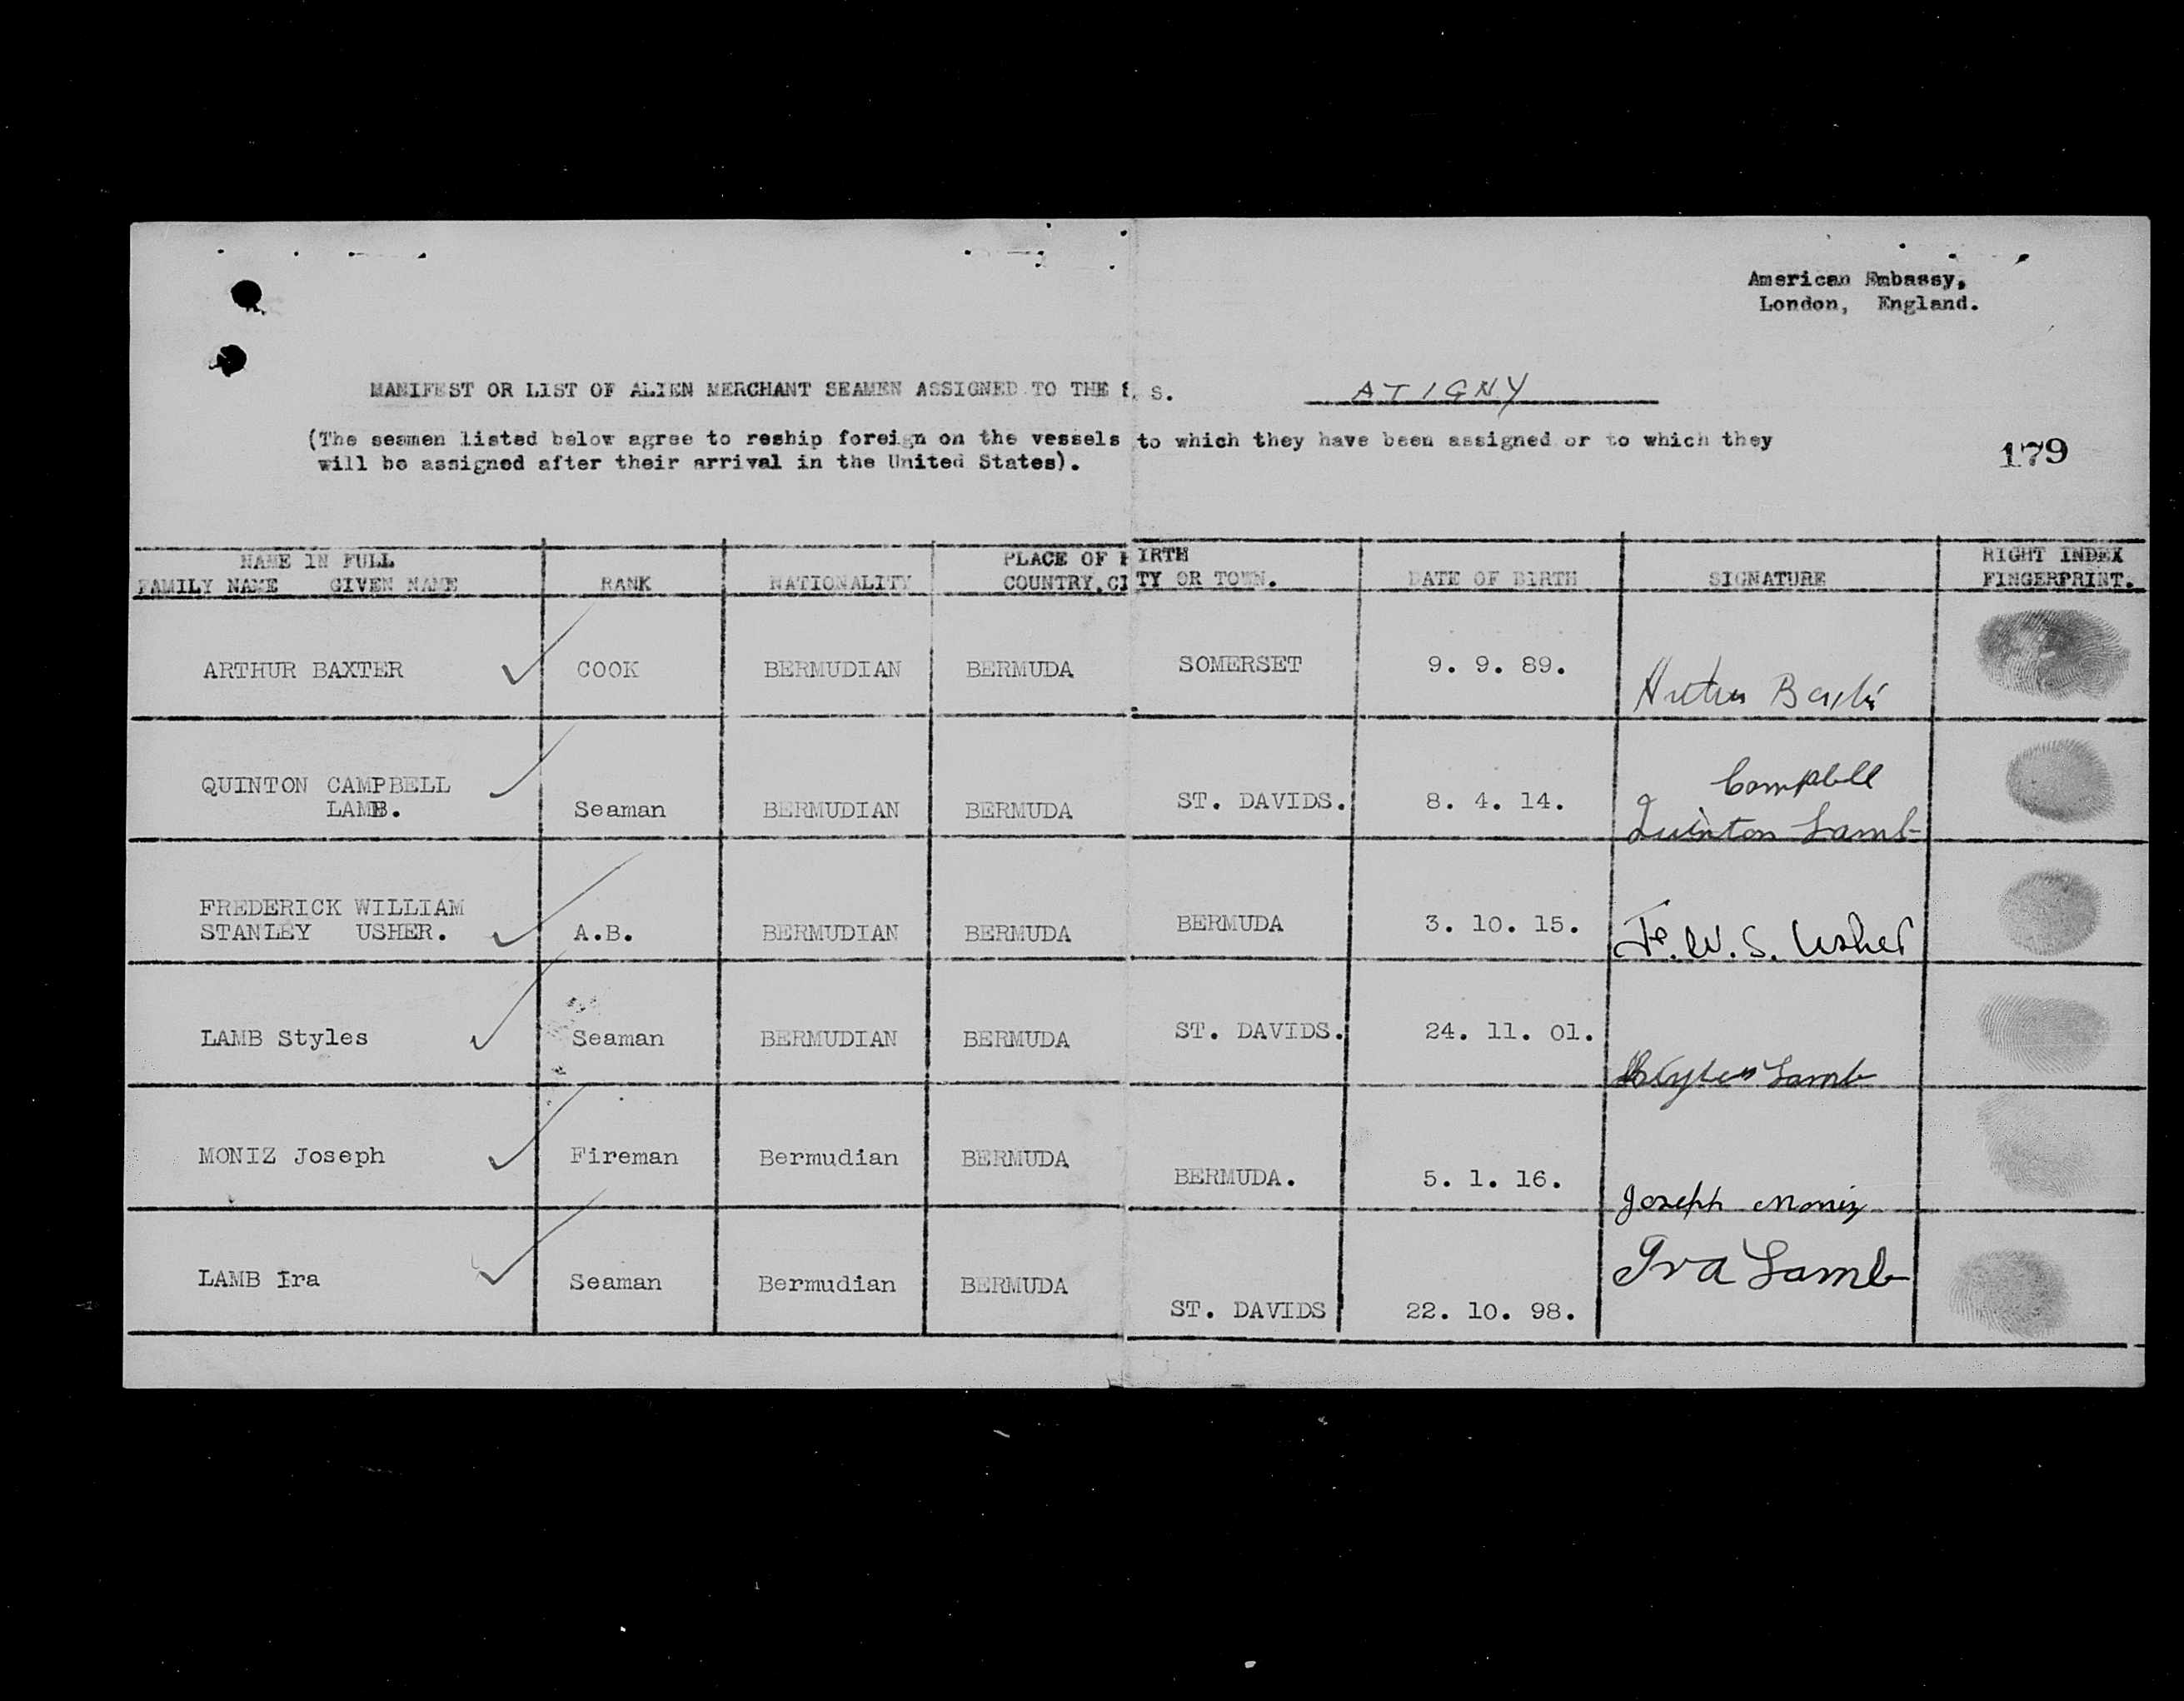 American Embassy,
London, England.
MANIFEST OR LIST OF ALIEN MERCHANT SEAMEN ASSIGNED TO THE S. S. ATIGNY
(The seamen listed below agree to reship foreign on the vessels to which they have been assigned or to which they
will be assigned after their arrival in the United States).
179
NAME IN FULL PLACE OF BIRTH RIGHT INDEX
FAMILY NAME GIVEN NAME RANK NATIONALITY COUNTRY, CITY OR TOWN. DATE OF BIRTH SIGNATURE FINGERPRINT.
ARTHUR BAXTER COOK BERMUDIAN BERMUDA SOMERSET 9. 9. 89. Arthur Baxter
QUINTON CAMPBELL Campbell
LAMB. Seaman BERMUDIAN BERMUDA ST. DAVIDS. 8. 4. 14. Quinton Lamb
FREDERICK WILLIAM
STANLEY USHER. A.B. BERMUDIAN BERMUDA BERMUDA 3. 10. 15. F. W. S. Usher
LAMB Styles Seaman BERMUDIAN BERMUDA ST. DAVIDS. 24. 11. 01. Styles Lamb
MONIZ Joseph Fireman Bermudian BERMUDA BERMUDA. 5. 1. 16. Joseph Moniz
LAMB Ira Seaman Bermudian BERMUDA ST. DAVIDS 22. 10. 98. Ira Lamb